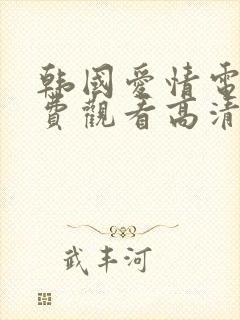 韩國愛情電
費觀看高清
武丰河